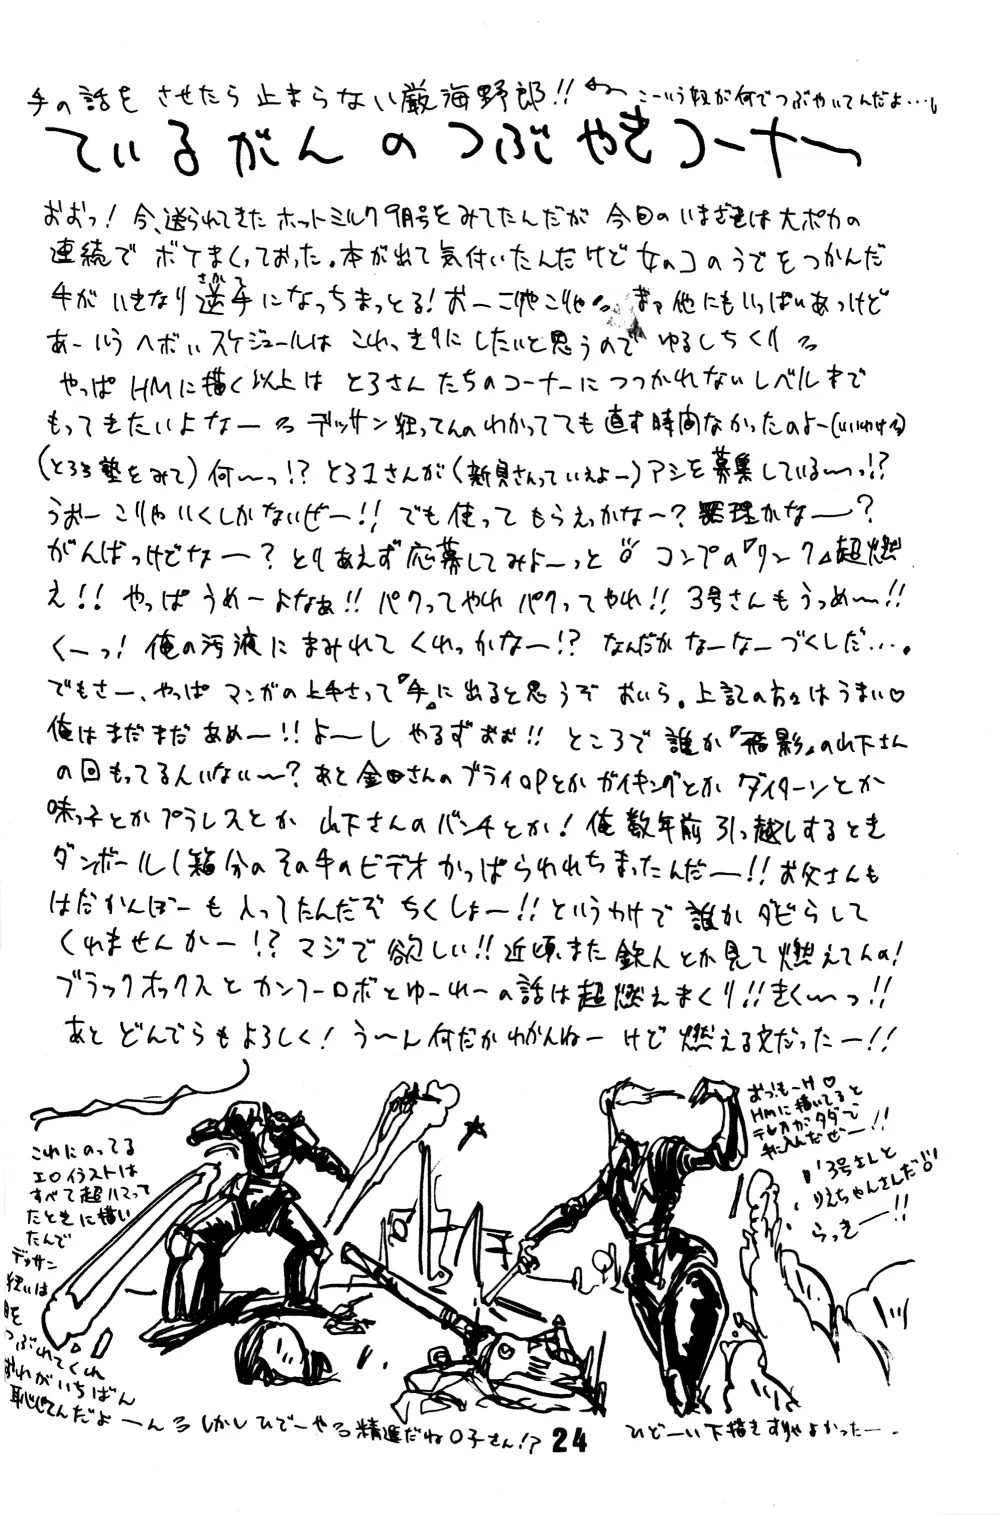 手の話をさせたら止まらない厳海野郎!! こーいう奴が何でつぶやいてんだよ…。
ているがんのつぶやきコーナー
おおっ!今、送られてきたホットミルク9月号をみてたんだが今日のいまざきは大ポカの
連続でボケまくっておった。本が出て気付いたんだけど女のコのうでをつかんだ
手がいきなり逆手になっちまっとる!おーこりゃこりゃ まァ他にもいっぱいあっけど
さかて
あーいうヘボいスケジュールはこれっきりにしたいと思うのでゆるしちくり
やっぱHMに描く以上はとろさんたちのコーナーにつつかれないレベルまで
もってきたいよなー デッサン狂ってんのわかってても直す時間なかったのよー(いいわける)
(とろろ塾をみて)何〜っ!?とろ1さんが(新貝さんっていえよー)アシを募集している〜っ!?
うおーこりゃいくしかないぜー!!でも使ってもらえっかな〜?無理かなー?
がんばっけどなー?とりあえず応募してみよーっと コンプの『リンク』超燃
え!!やっぱうめーよなぁ!!パクってやれパクってやれ!!3号さんもうっめ〜!!
くーっ!俺の汚液にまみれてくれっかなー!?なんだかなーなーづくしだ…。
でもさー、やっぱマンガの上手さって『手』に出ると思うぞおいら。上記の方々はうまい♡
俺はまだまだあめー!!よ〜しやるずぉぉ!!ところで誰か『飛影』の山下さん
の回もってる人いない〜?あと金田さんのブライOPとかガイキングとかダイターンとか
味っ子とかプラレスとか山下さんのバンチとか!俺数年前引っ越しするとき
ダンボール1箱分のその手のビデオかっぱらわれちまったんだー!!お父さんも
はだかんぼーも入ってたんだぞちくしょー!!というわけで誰かダビらして
くれませんかー!?マジで欲しい!!近頃また鉄人とか見て燃えてんの!
ブラックオックスとカンフーロボとゆーれーの話は超燃えまくり!!きく〜っ!!
あとどんでらもよろしく!う〜ん何だかわかんねーけど燃える文だったー!!
これにのってる
エロイラストは
すべて超ハマって
たときに描い
たんで
デッサン
狂いは
目を
つぶれてくれ
おれがいちばん
恥じてんだよーん しかしひでーや 精進だね○子さん!?
おっもーH♡
HMに描いてると
テレカがタダで
手に入んだぜー!!
3号さんと
りえちゃんさんだ
らっきー!!
24
ひどーい下描きすりゃよかったー。